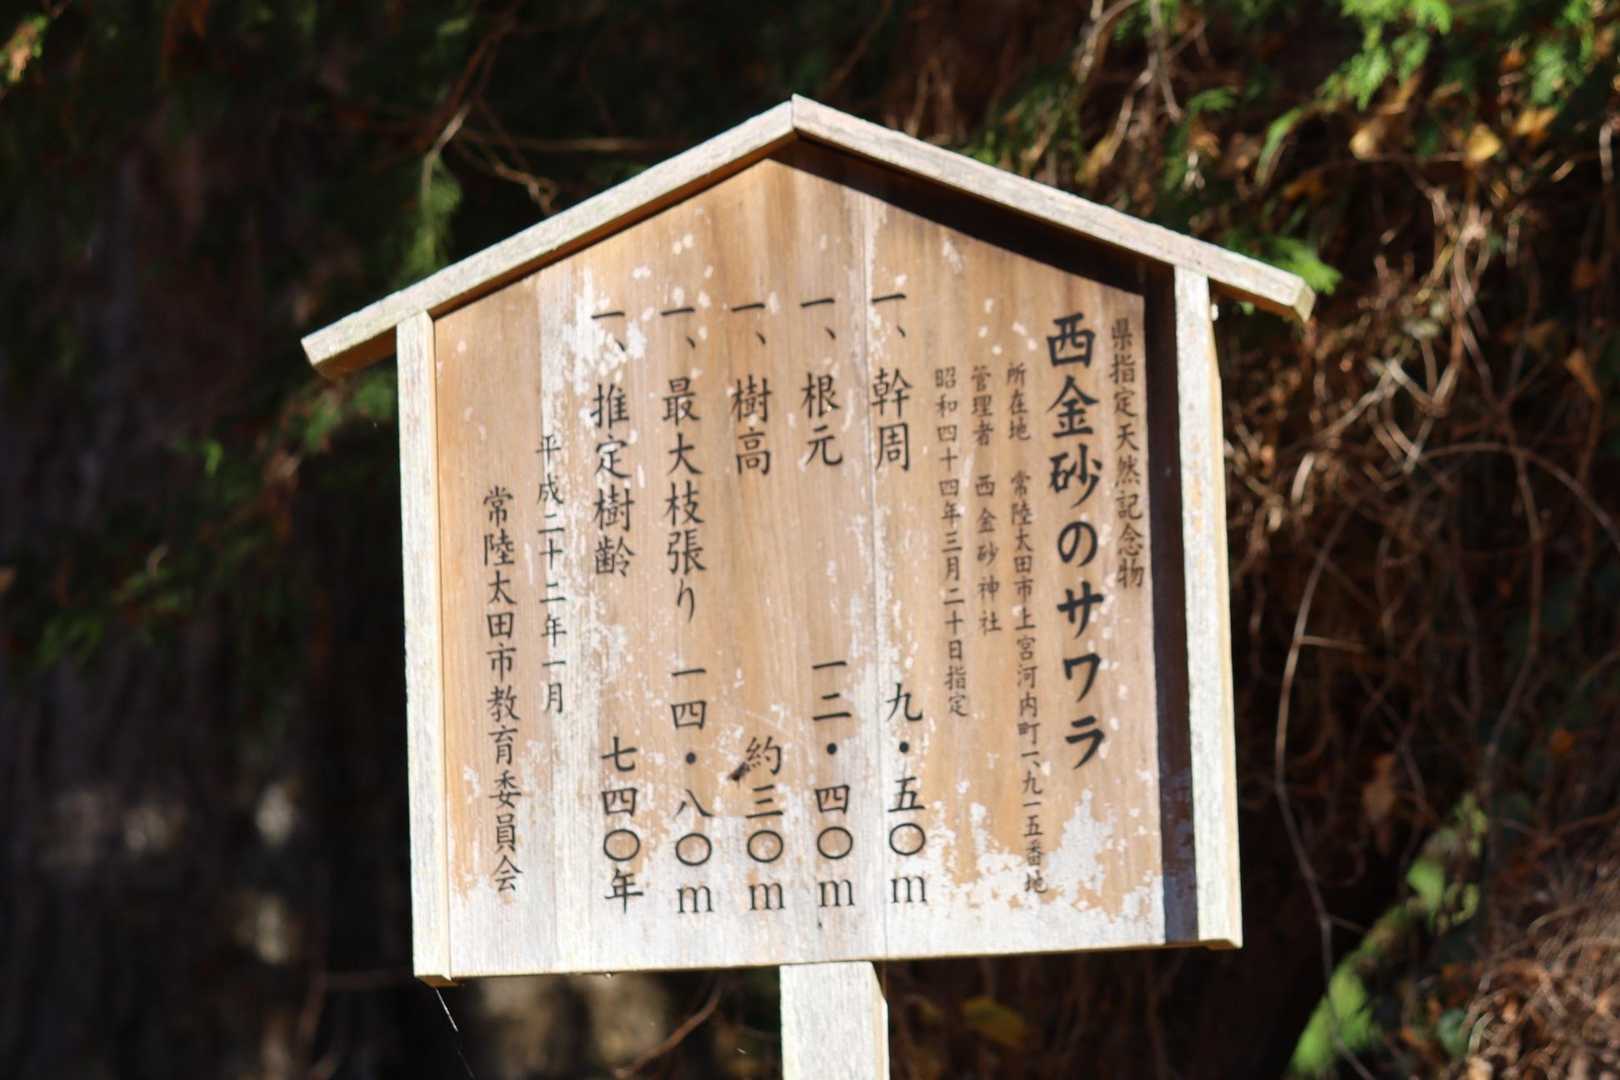 県指定天然記念物
西金砂のサワラ
所在地　常陸太田市上宮河内町一、九一五番地
管理者　西金砂神社
昭和四十四年三月二十日指定
一、幹周　九・五〇m
一、根元　一二・四〇m
一、樹高　約三〇m
一、最大枝張り　一四・八〇m
一、推定樹齢　七四〇年
平成二十二年一月
常陸太田市教育委員会